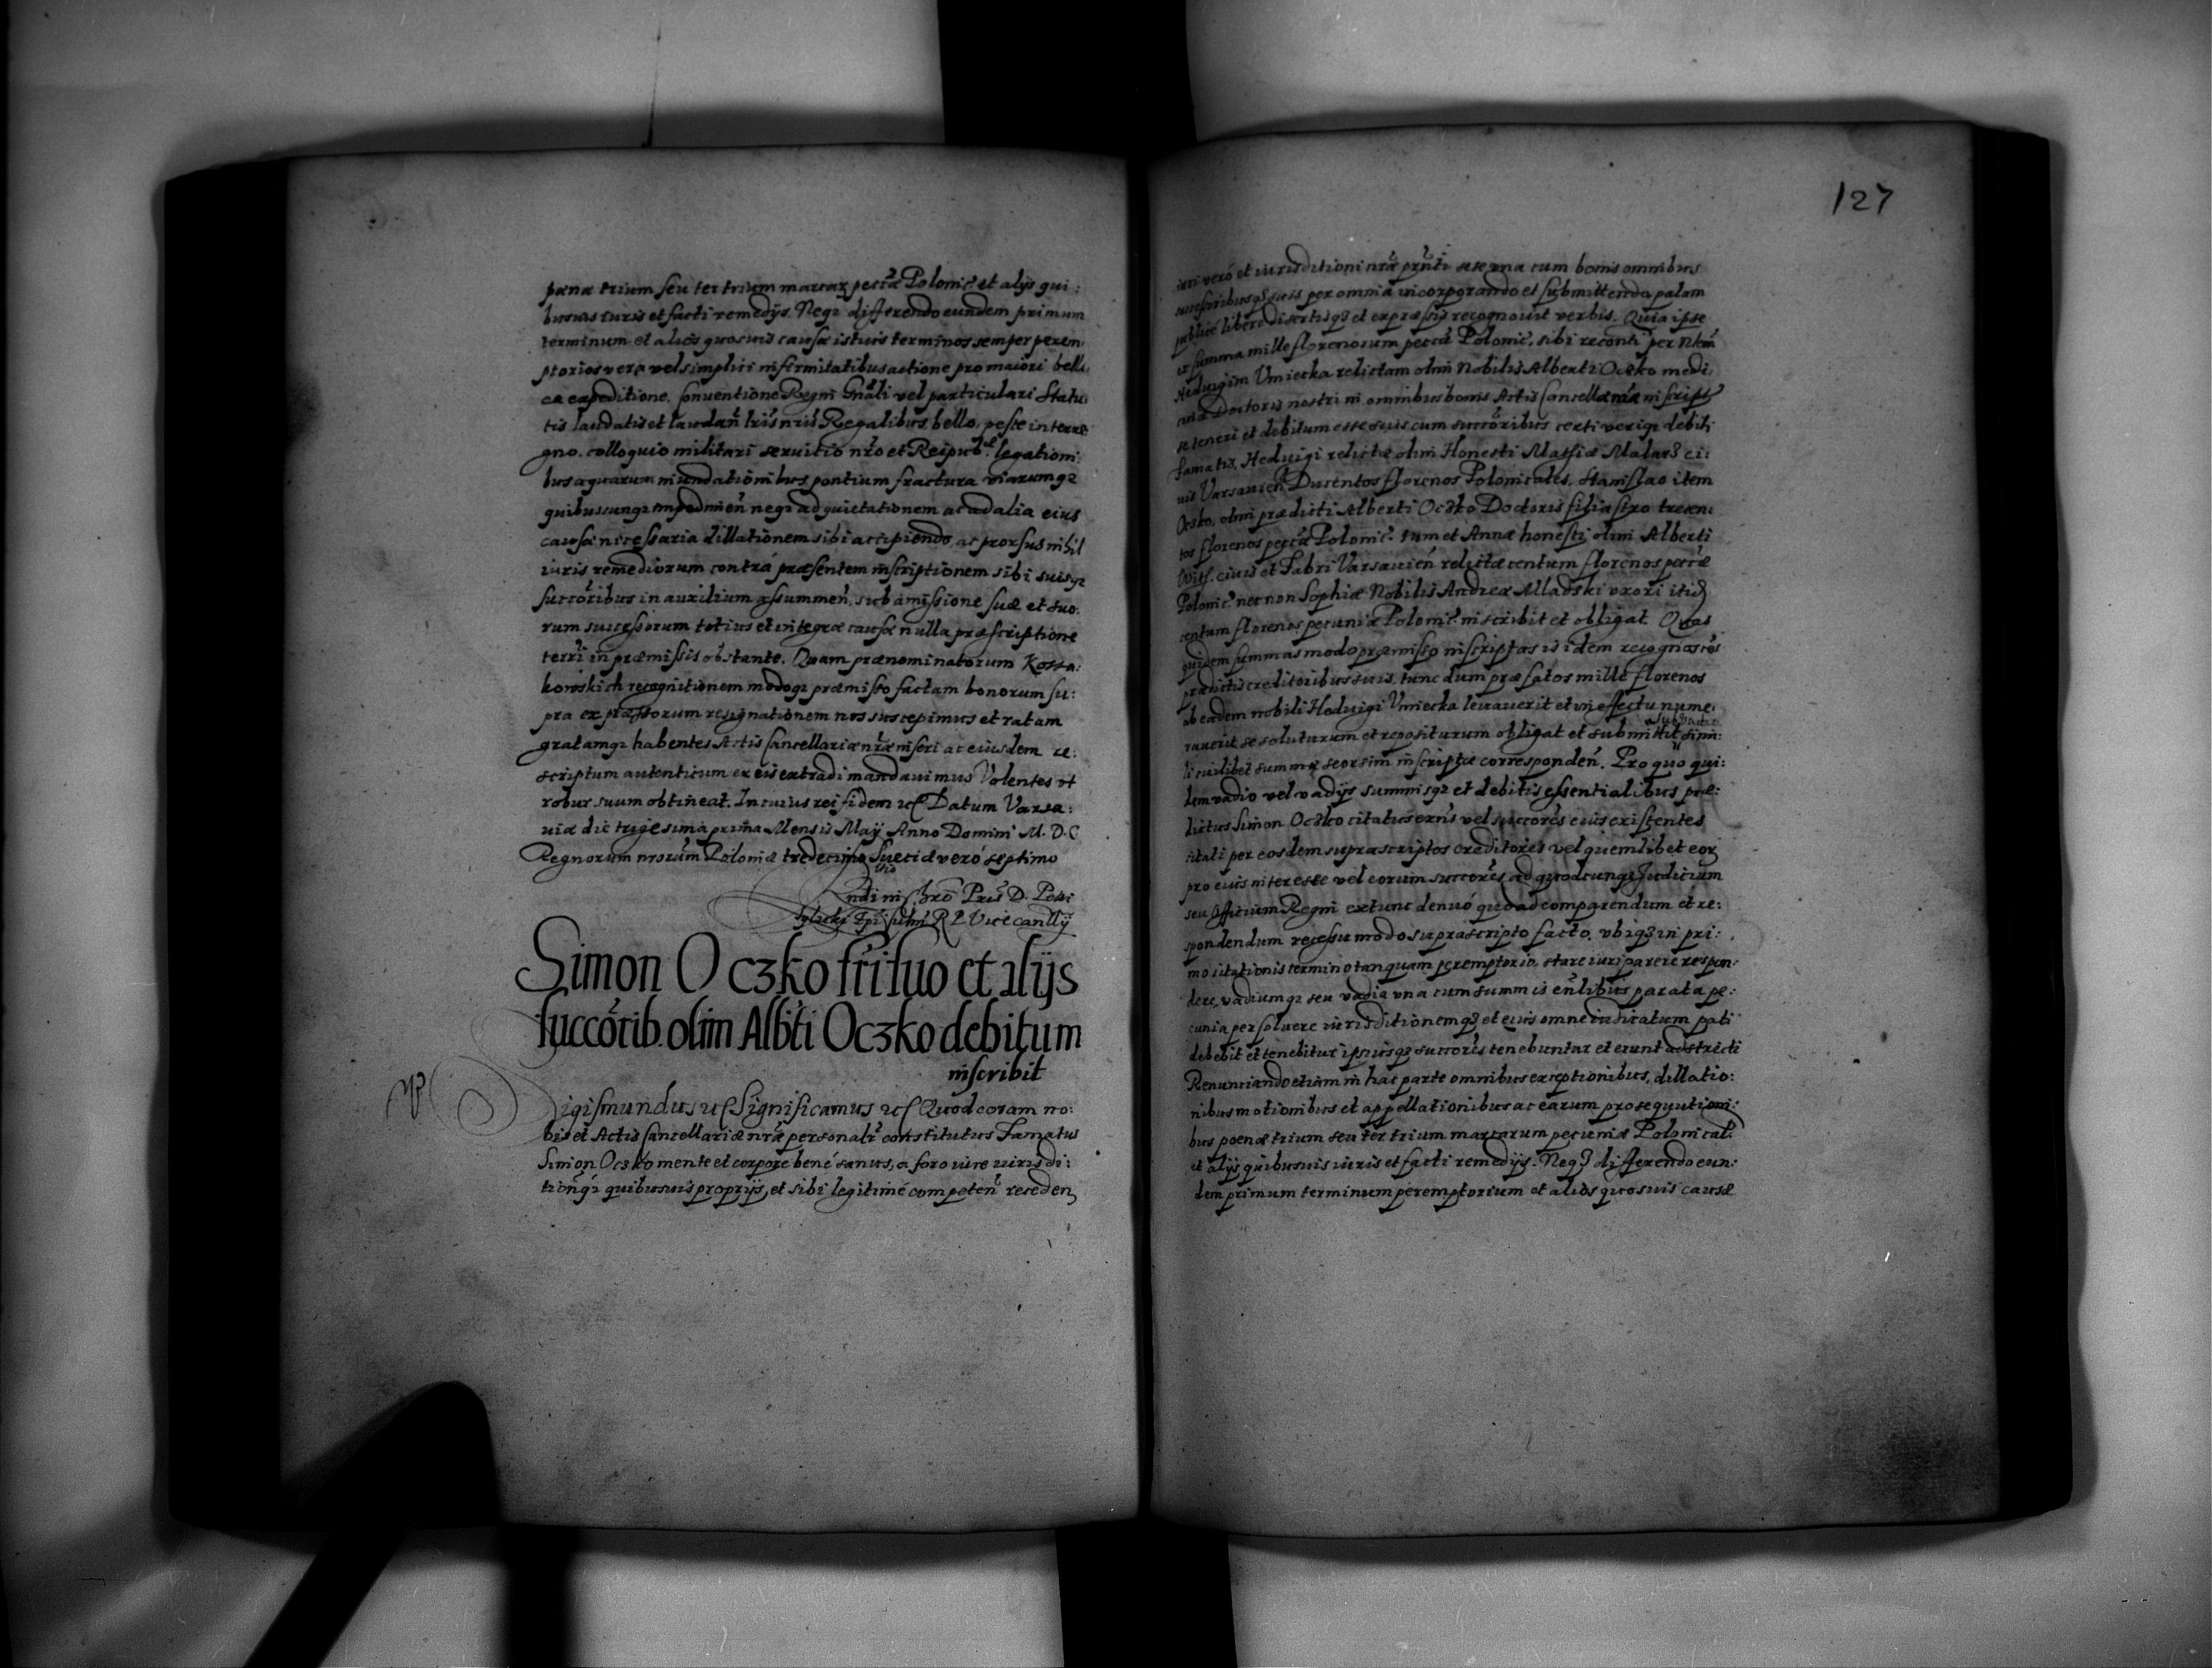 pœnæ trium seu ter trium marcar pecãe Polonic. et alijs qui:
busvis iuris et facti remedijs. Neqz differendo eundem primum
terminum et alios quosvis causæ istius terminos semper peren
ptorios vera vel simplici infirmitatibus actione pro maiori belli
ca expeditione. Conventione Regni Gnãli vel particulari Statu
tis laudatis et laudañ lris nris Regalibus, bello, peste interre
gno. colloquio militari servitio nro et Reipub. legationi
bus aquarum inundationibus pontium fractura viarumqz
quibuscunqz impedimeñ neqz ad quietationem ac ad alia eius
causæ necessaria dillationem sibi accipiendo, ac prorsus nihil
iuris remediorum contra præsentem inscriptionem sibi suisqz
succoribus in auxilium assummeñ, sub amissione suæ et suo:
rum successorum totius et integræ causæ nulla præscriptione
terri in præmissis obstante. Quam prænominatorum Kossa:
kowskich recognitionem modoqz præmisso factam bonorum su:
pra expressorum resignationem nos suscepimus et ratam
gratamqz habentes Actis Cancellariæ nræ inseri ac eiusdem re:
scriptum autenticum ex eis extradi mandavimus Volentes ut
robur suum obtineat. In cuius rei fidem etc Datum Varsa:
viæ die trigesima prima Mensis Maij Anno Domini M. D. C
Regnorum nrorum Poloniæ tredecimo Sueciæ vero septimo
Rndi in Chro Pris D. Petri
Tylicki Epi Culmñ R P Vicecancllij
Simon Oczko frĩ suo et alijs
succorib. olim Albti Oczko debitum
inscribit
Sigismundus etc Significamus etc Quod coram no:
bis et Actis Cancellariæ nræ personalr constitutus Famatus
Simon Oczko mente et corpore bené sanus, a foro iure iurisdi:
tionqz quibusvis proprijs, et sibi legitimé competeñ reseden
127
iuri veró et iurisditioni nræ prñti sese una cum bonis omnibus
successoribusqz suis per omnia incorporando et submittendo palam
publicé liberé disertisqz et expressis recognovit verbis. Quia ipse
ex summa mille florenorum pecæ Polonic. sibi
Hedvigim Umiecka relictam olim Nobilis Alberti Oczko medi
cinæ Doctoris nostri in omnibus bonis Actis Cancellariæ inscript
se teneri et debitum esse suis cum succoribus certi veriqz debiti
famatis, Hedvigi relictæ olim Honesti Mathiæ Malarz ci:
vis Varsavieñ Ducentos florenos Polonicales, Stanislao item
Oczko, olim prædicti Alberti Oczko Doctoris filiastro trecen:
tos florenos pecæ Polonic. tum et Annæ honesti olim Alberti
civis et Fabri Varsavieñ relictæ centum florenos pecæ
Polonic. nec non Sophiæ Nobilis Andreæ Alladski uxori itid
centum florenos pecuniæ Polonic. inscribit et obligat. Quas
quidem summas modo præmisso inscriptas is idem recognoscẽs
prædictis creditoribus suis, tunc dum præfatos mille florenos
ab eadem nobili Hedvigi Umiecka levaverit et in effectu nume:
raverit se soluturum et repositurum obligat et submittit sub vadio simi:
li cuilibet summæ seorsim inscriptæ correspondeñ. Pro quo qui:
dem vadio vel vadijs summisqz et debitis essentialibus præ:
dictus Simon Oczko citatus exñs vel succores eius existentes
citati per eosdem suprascriptos creditores vel quemlibet eor
pro eius interesse vel eorum succores, ad quodcunqz Judicium
seu Officium Regni extunc denuó quoad comparendum et re:
spondendum recessu modo suprascripto facto, ubiqz in pri:
mo citationis termino tanquam peremptorio, stare iuri parere respon:
dere, vadiumqz seu vadia una cum summis eñlibus parata pe:
cunia persolvere iurisditionemqz et eius omne iudicatum pati
debebit et tenebitur ipsiusqz succores tenebuntur et erunt adstricti
Renunciando etiam in hac parte omnibus exceptionibus, dillatio:
nibus motionibus et appellationibus ac earum prosequutioni:
bus poenæ trium seu ter trium marcarum pecuniæ Polonical.
et alijs quibusvis iuris et facti remedijs. Neqz differendo eun:
dem primum terminum peremptorium et alios quosvis causæ